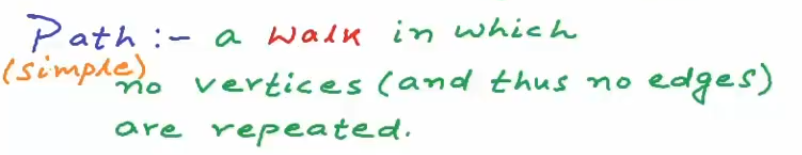 Path :- a walk in which
(simple)
no vertices (and thus no edges)
are repeated.